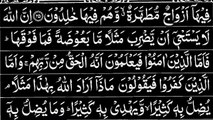 فِيهَآ اَزْوَاجٌ مُّطَهَّرَةٌ وَّهُمْ فِيهَا خٰلِدُوْنَ ﴿۲۵﴾ اِنَّ اللّٰهَ
لَا يَسْتَحْيٖٓ اَنْ يَّضْرِبَ مَثَلًا مَّا بَعُوْضَةً فَمَا فَوْقَهَا ؕ
فَاَمَّا الَّذِيْنَ اٰمَنُوْا فَيَعْلَمُوْنَ اَنَّهُ الْحَقُّ مِنْ رَّبِّهِمْ ۚ وَاَمَّا
الَّذِيْنَ كَفَرُوْا فَيَقُوْلُوْنَ مَاذَآ اَرَادَ اللّٰهُ بِهٰذَا مَثَلًا ۘ
يُضِلُّ بِهٖ كَثِيْرًا ۙ وَّيَهْدِىْ بِهٖ كَثِيْرًا ؕ وَمَا يُضِلُّ بِهٖٓ